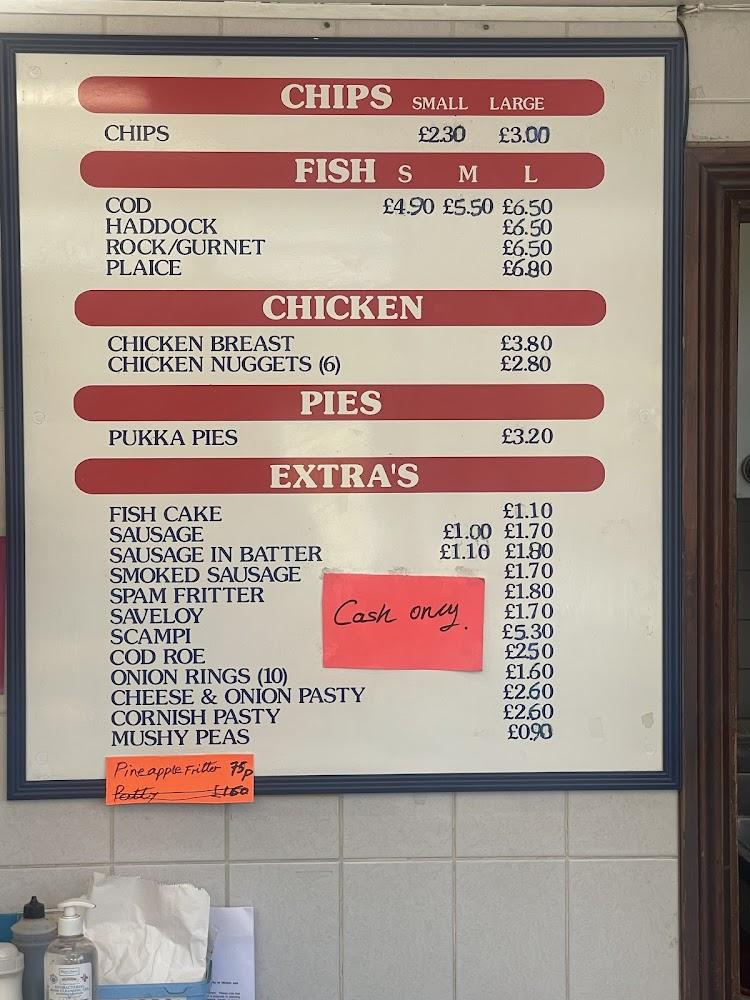 CHIPS SMALL LARGE
CHIPS £2.30 £3.00
FISH S M L
COD £4.90 £5.50 £6.50
HADDOCK £6.50
ROCK/GURNET £6.50
PLAICE £6.80
CHICKEN
CHICKEN BREAST £3.80
CHICKEN NUGGETS (6) £2.80
PIES
PUKKA PIES £3.20
EXTRA'S
FISH CAKE £1.10
SAUSAGE £1.00 £1.70
SAUSAGE IN BATTER £1.10 £1.80
SMOKED SAUSAGE £1.70
SPAM FRITTER £1.80
SAVELOY £1.70
SCAMPI £5.30
COD ROE £2.50
ONION RINGS (10) £1.60
CHEESE & ONION PASTY £2.60
CORNISH PASTY £2.60
MUSHY PEAS £0.90
Cash only.
Pineapple Fritter 75p
Patty £1.60